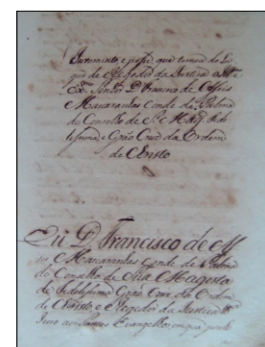 Juramento e posse que tomou do Lu
gar de Regedor da Justiça o Ill.mo
Ex.mo Senhor D. Francisco de Assis
e Mascarenhas Conde de Palma
do Conselho de S.
e Grão Cruz da Ordem
de Christo
Eu D. Francisco de As
sis e Mascarenhas Conde de Palma
do Conselho de Sua Magesta
de Fidelissima Grão Cruz da Ordem
de Christo e Regedor da Justiça
Juro aos Santos Evangelhos em que ponho